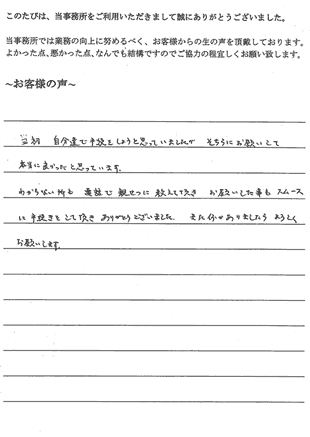 このたびは、当事務所をご利用いただきまして誠にありがとうございました。
当事務所では業務の向上に努めるべく、お客様からの生の声を頂戴しております。
よかった点、悪かった点、なんでも結構ですのでご協力の程宜しくお願い致します。
~お客様の声~
当初 自分達で手続をしようと思っていましたが そちらにお願いして
本当によかったと思っています。
わからない所も 電話で 親せつに 教えて頂き お願いした事も スムース
に 手続きをして頂き ありがとうございました。 また何かありましたら よろしく
お願いします。